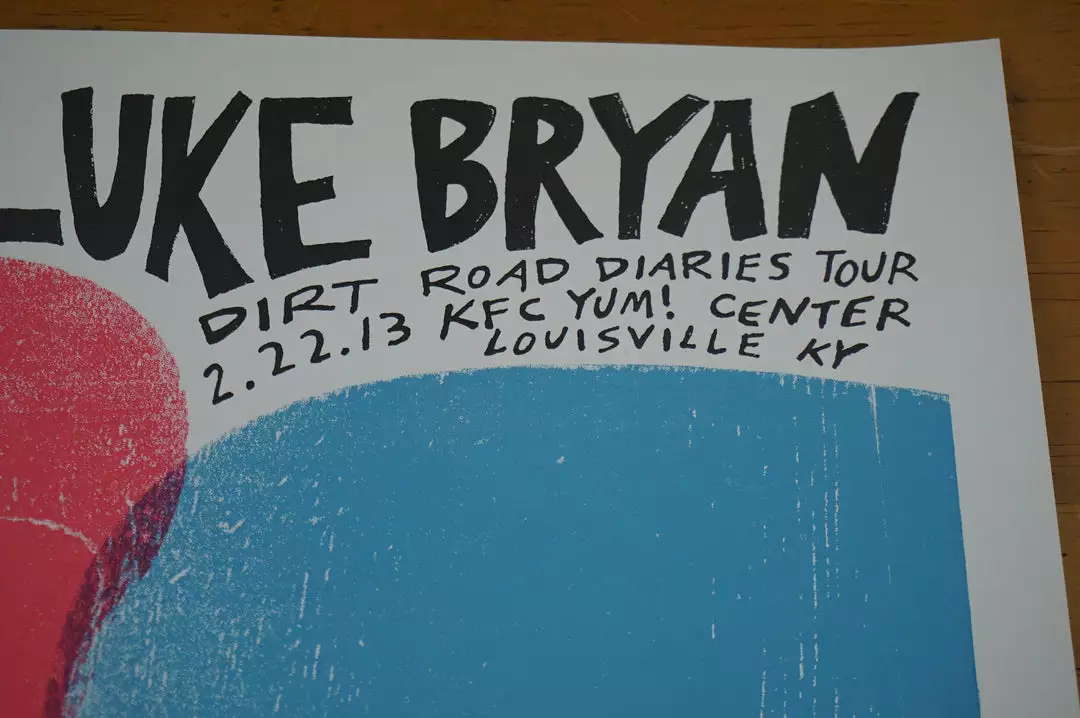 LUKE BRYAN
DIRT ROAD DIARIES TOUR
2.22.13 KFC YUM! CENTER
LOUISVILLE KY